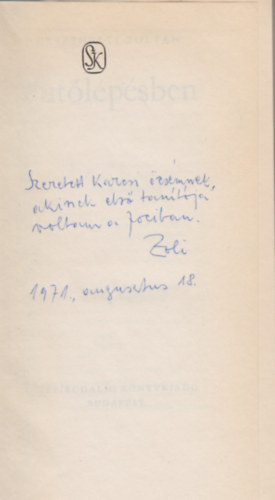 SzK
Szeretett Karcsi öcsémnek,
akinek első tanítója
voltam a fociban.
Zoli
1971. augusztus 18.